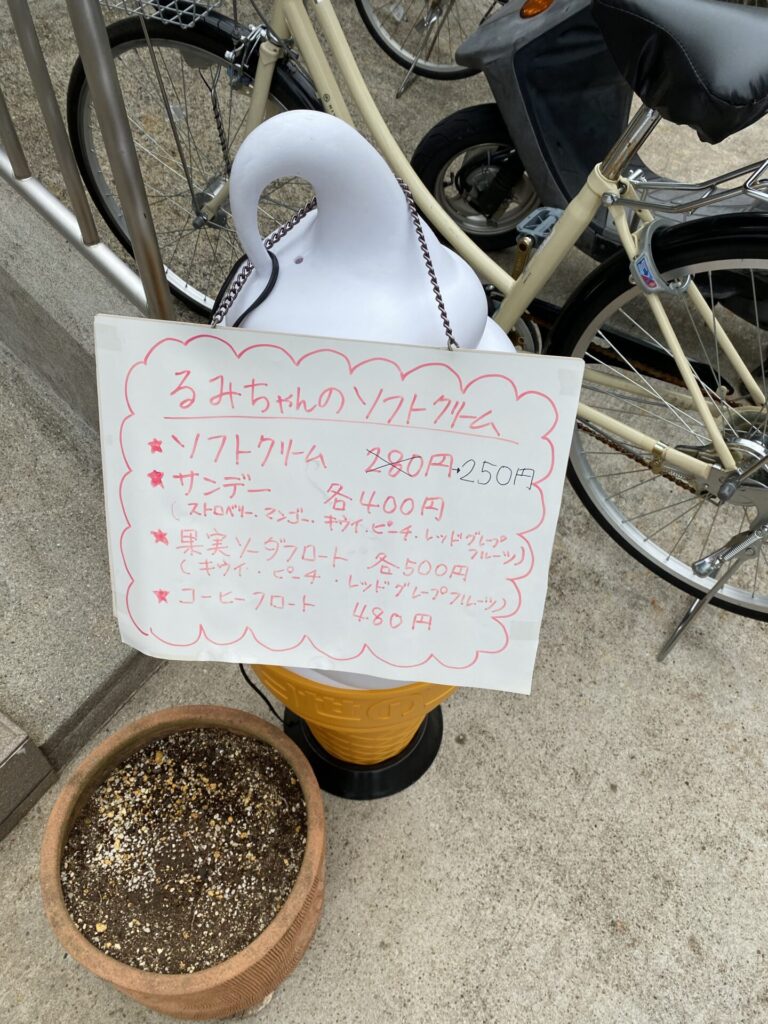 るみちゃんのソフトクリーム
★ソフトクリーム 280円→250円
★サンデー 各400円
(ストロベリー・マンゴー・キウイ・ピーチ・レッドグレープフルーツ)
★果実ソーダフロート 各500円
(キウイ・ピーチ・レッドグレープフルーツ)
★コーヒーフロート 480円